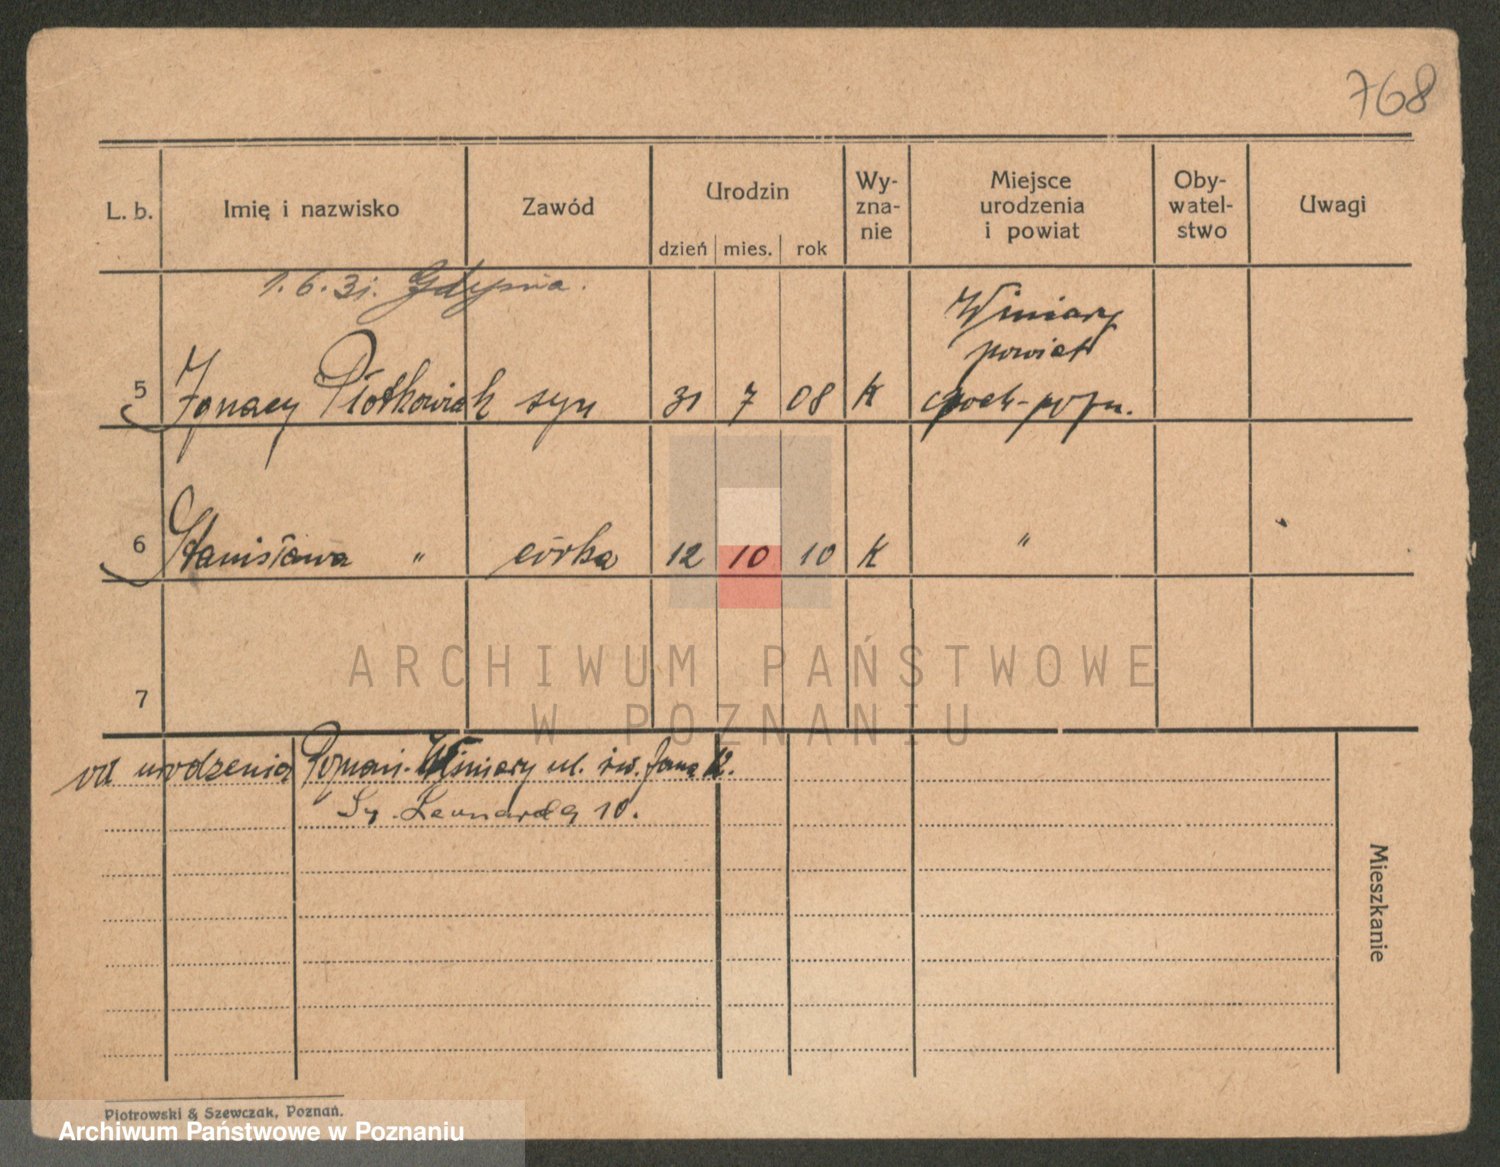 768
L. b. Imię i nazwisko Zawód Urodzin Wy-
zna-
nie Miejsce
urodzenia
i powiat Oby-
watel-
stwo Uwagi
dzień mies. rok
1. 6. 31. Gdynia.
Winiary
powiat
5 Ignacy Płotkowiak syn 31 7 08 K pozn.
6 Stanisława " córka 12 10 10 K "
ARCHIWUM PAŃSTWOWE
7
W POZNANIU
od urodzenia Poznań-Winiary ul. św. Jana 12.
Św. Leonarda 10.
Mieszkanie
Piotrowski & Szewczak, Poznań.
Archiwum Państwowe w Poznaniu